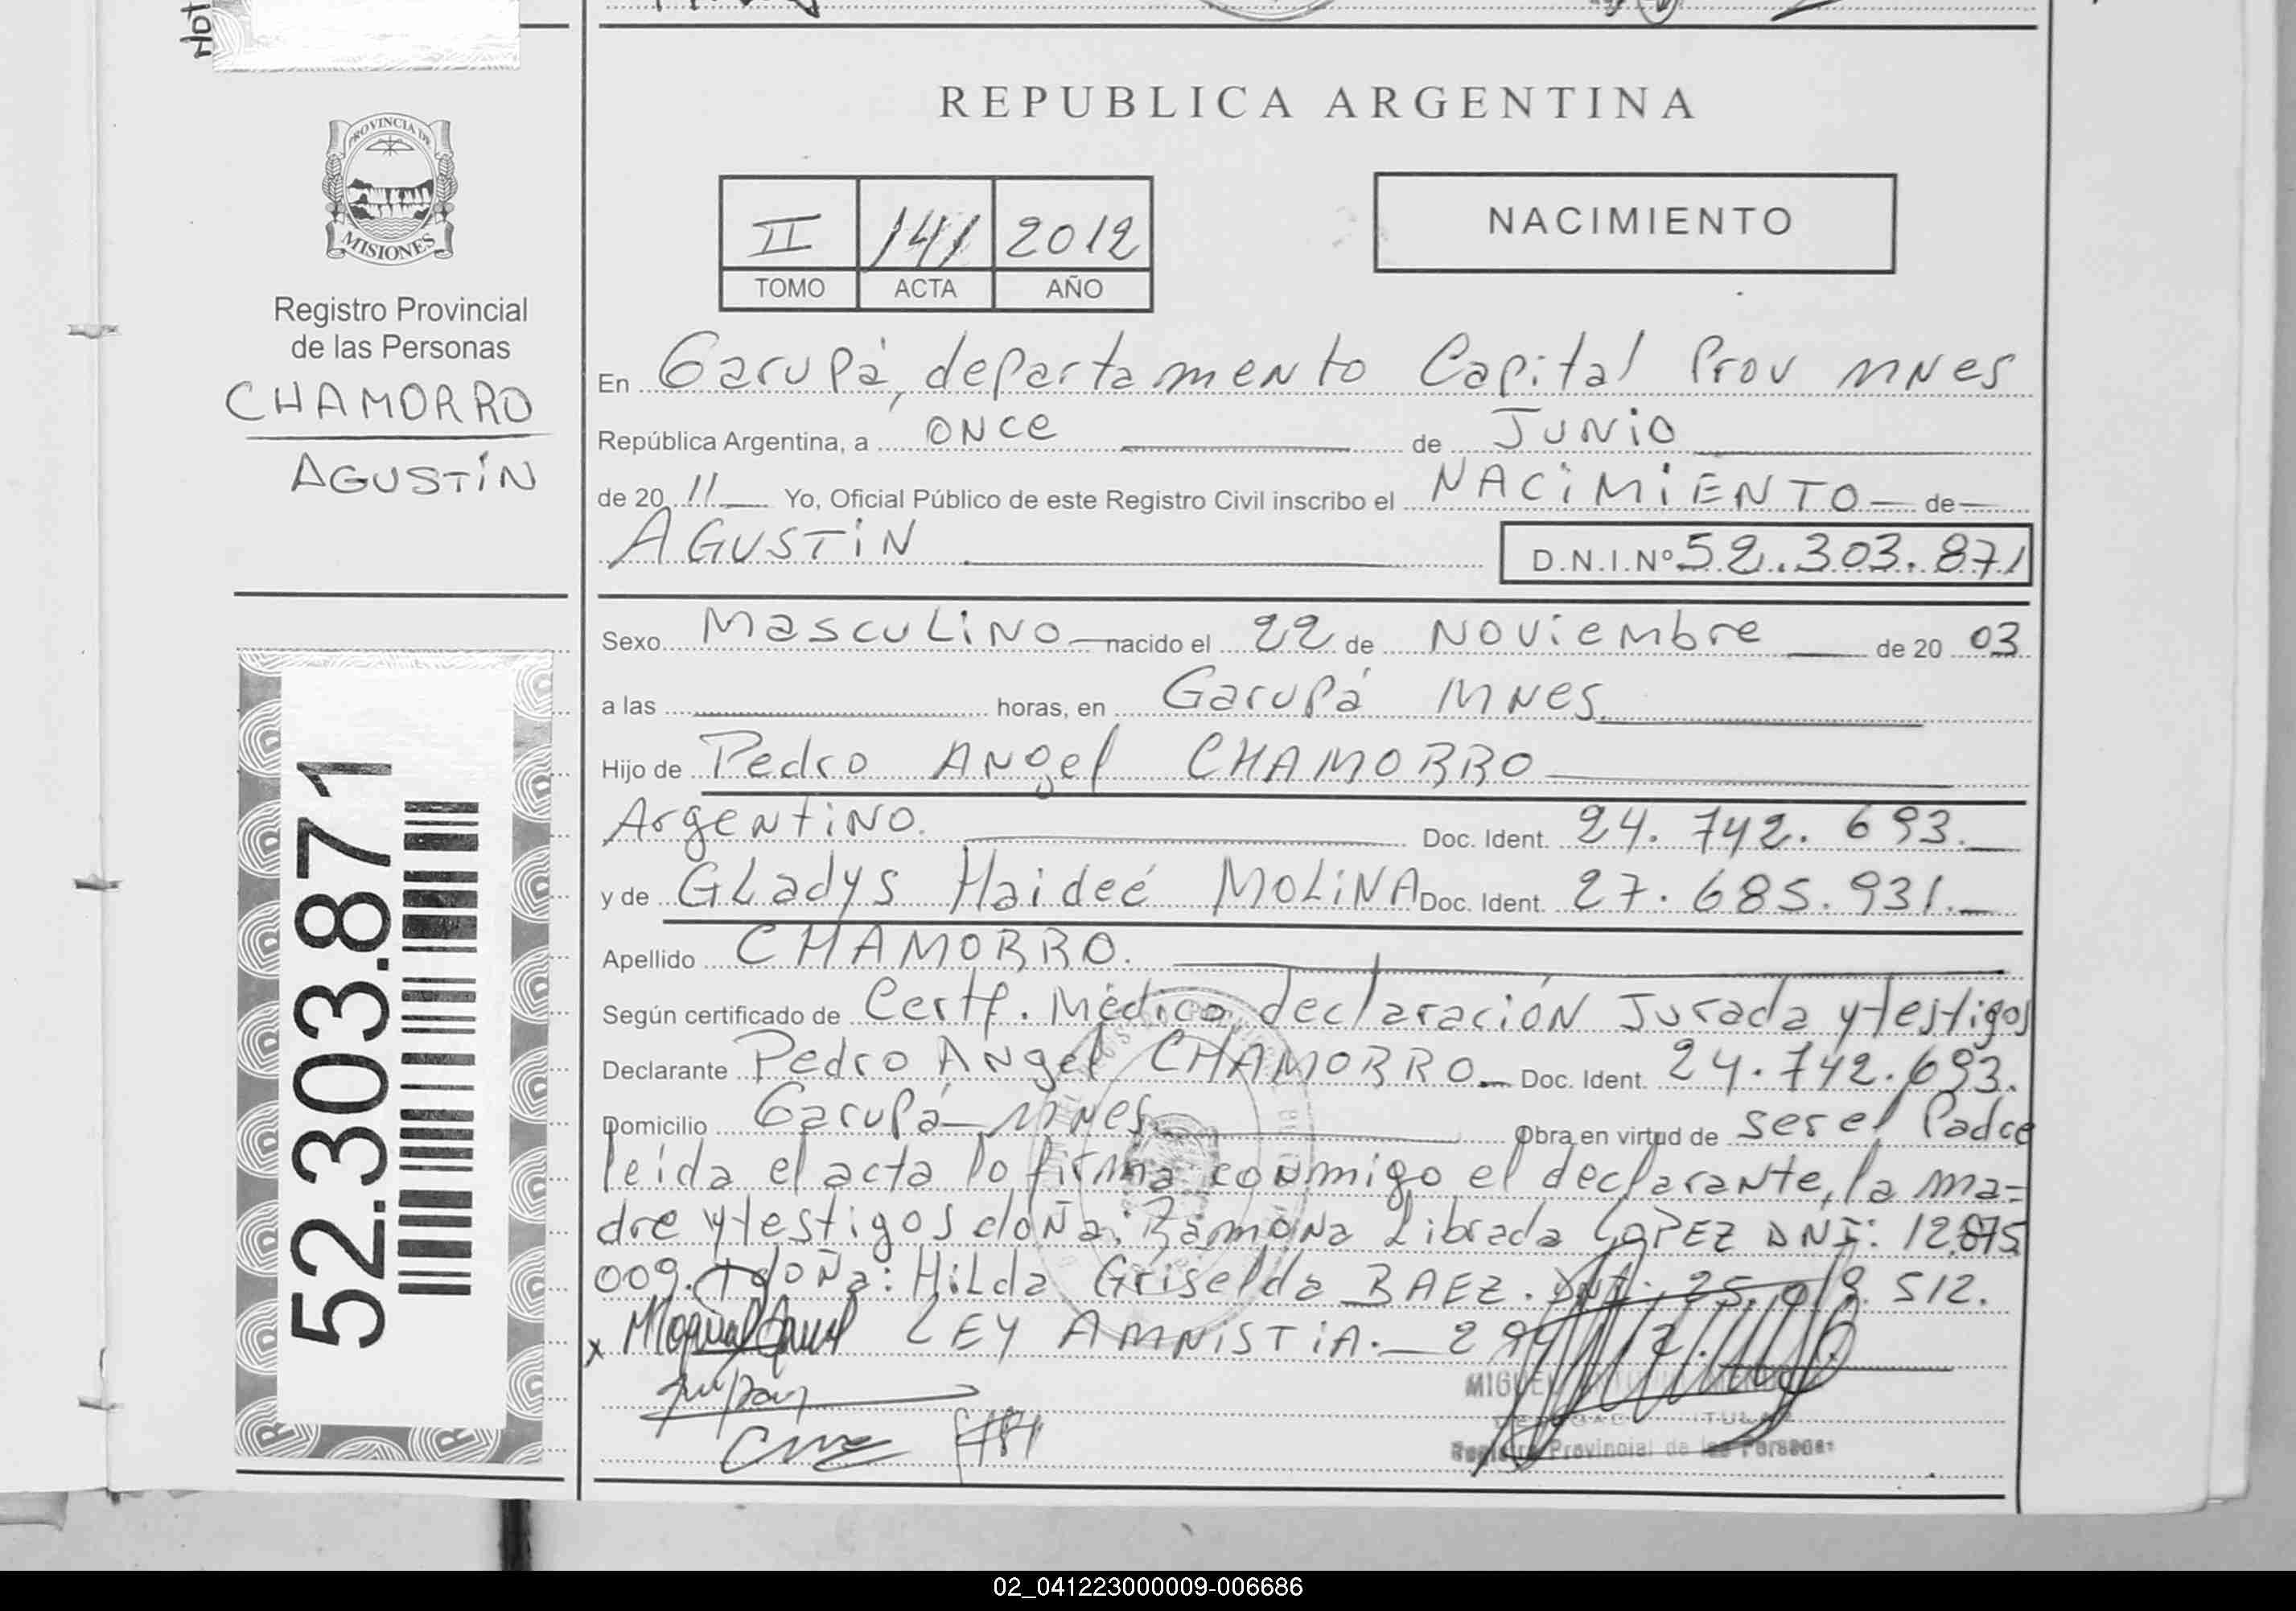 Not
PROVINCIA DE
MISIONES
Registro Provincial
de las Personas
CHAMORRO
AGUSTÍN
52.303.871
REPUBLICA ARGENTINA
II 141 2012
TOMO ACTA AÑO
NACIMIENTO
En Garupá, departamento Capital Prov MNes
República Argentina, a once de Junio
de 20 11 Yo, Oficial Público de este Registro Civil inscribo el NACIMIENTO de
AGUSTIN D.N.I.Nº 52.303.871
Sexo Masculino nacido el 22 de Noviembre de 20 03
a las horas, en Garupá MNes
Hijo de Pedro Angel CHAMORRO
Argentino. Doc. Ident. 24.742.693.
y de Gladys Haideé MOLINA Doc. Ident. 27.685.931.
Apellido CHAMORRO.
Según certificado de Certf. Médico, declaración Jurada y testigos
Declarante Pedro Angel CHAMORRO. Doc. Ident. 24.742.693.
Domicilio Garupá MNes. Obra en virtud de ser el Padre
leida el acta lo firma conmigo el declarante, la ma-
dre y testigos doña: Ramona Librada LOPEZ DNI: 12.875
009. doña: Hilda Griselda BAEZ. DNI: 25. 512.
x LEY AMNISTIA.
MIGUEL
TITULAR
Registro Provincial de las Personas
02_041223000009-006686